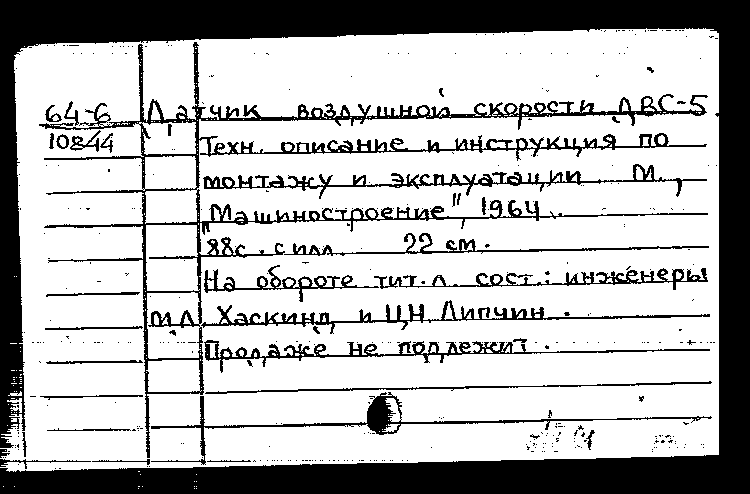 64-6 Датчик воздушной скорости ДВС-5.
10844 Техн. описание и инструкция по
монтажу и эксплуатации. М.,
"Машиностроение", 1964.
88с. с илл. 22 см.
На обороте тит. л. сост.: инженеры
М.Л. Хаскинд и Ц.Н. Липчин.
Продаже не подлежит.